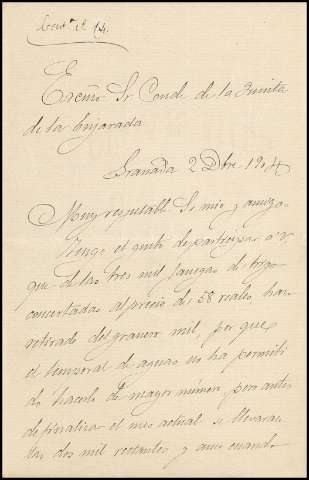 Excmo Sr Conde de la Quinta
de la Enjarada
Granada 2 Dbre 1904
Muy respetable Sr mio y amigo
Tengo el gusto de participar a V.
que de las tres mil fanegas de trigo
concertadas al precio de 58 reales, han
retirado del granero mil, por que
el temporal de aguas no ha permiti
do hacerlo de mayor número pero antes
de finalizar el mes actual se llevaran
las dos mil restantes y aun cuando